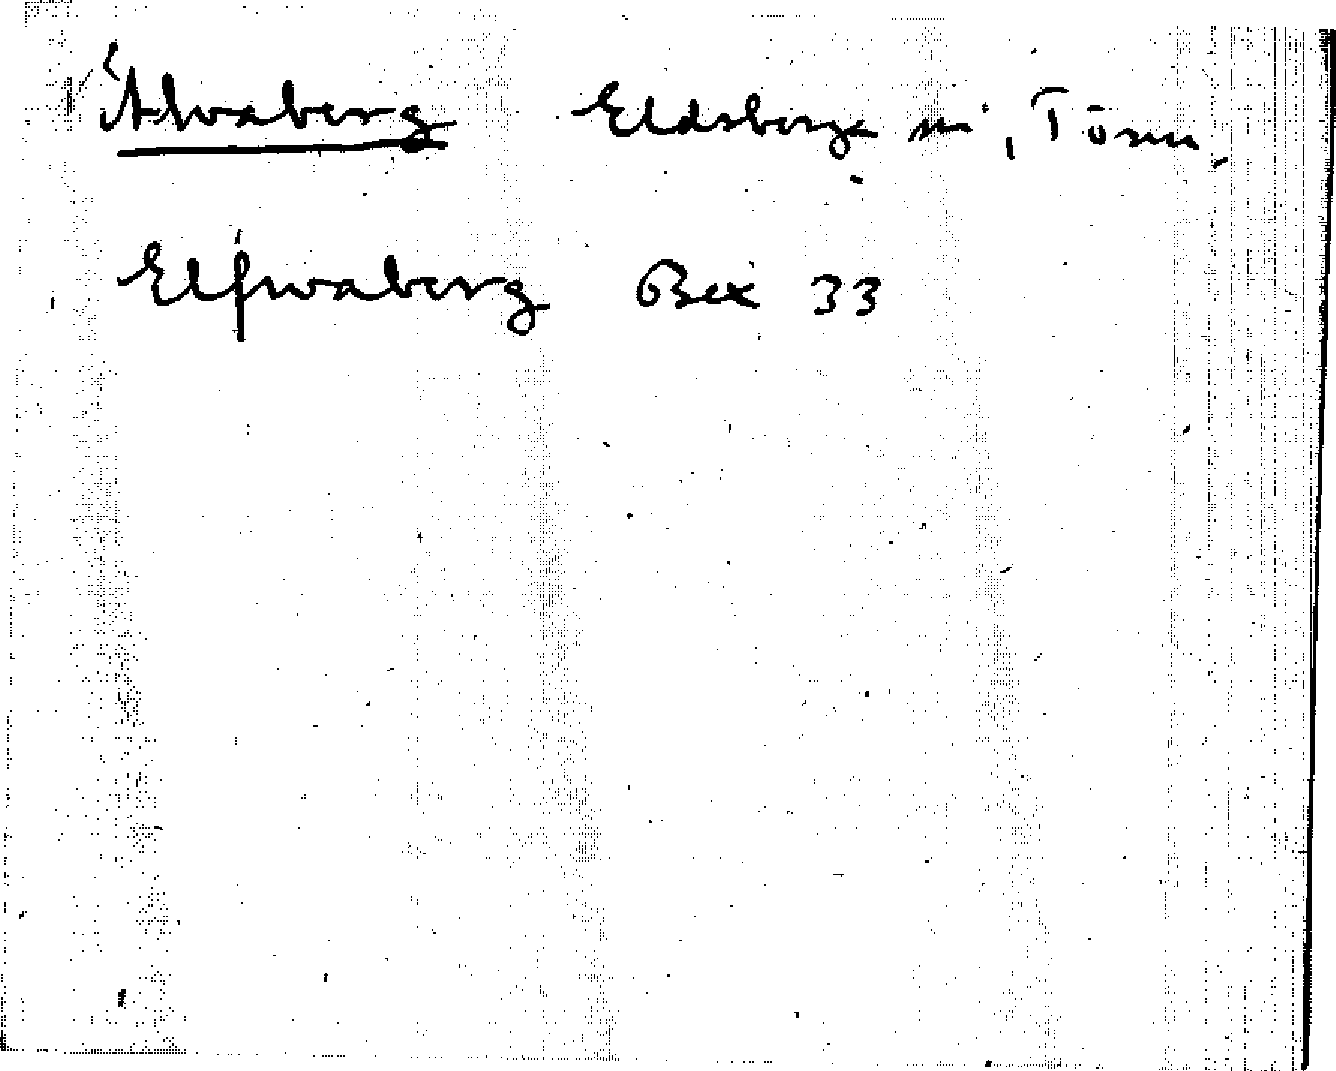 Alvaberg Eldsberga sn, Tönn.
Elfwaberg Bex 33